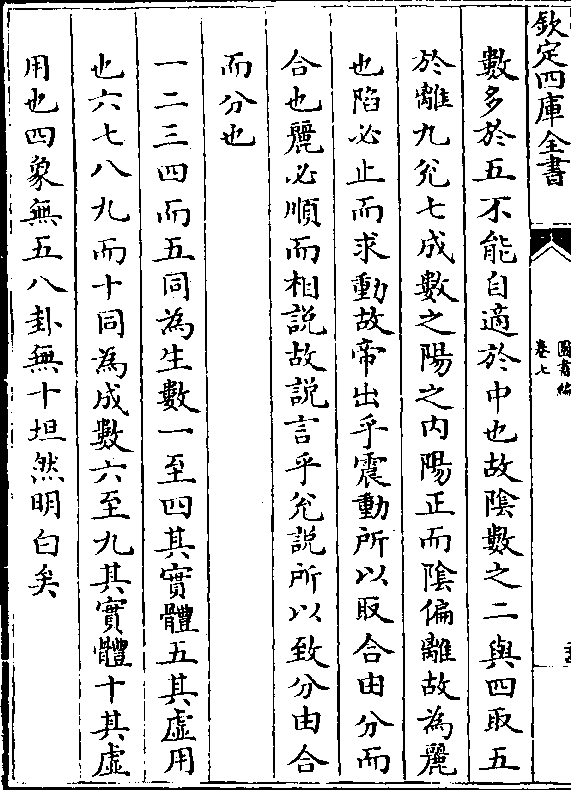 欽定四庫全書
圖書編
卷七
數多於五不能自適於中也故陰數之二與四取五
於離九兊七成數之陽之内陽正而陰偏離故為麗
也陷必止而求動故帝出乎震動所以取合由分而
合也麗必順而相説故説言乎兊説所以致分由合
而分也
一二三四而五同為生數一至四其實體五其虛用
也六七八九而十同為成數六至九其實體十其虛
用也四象無五八卦無十坦然明白矣